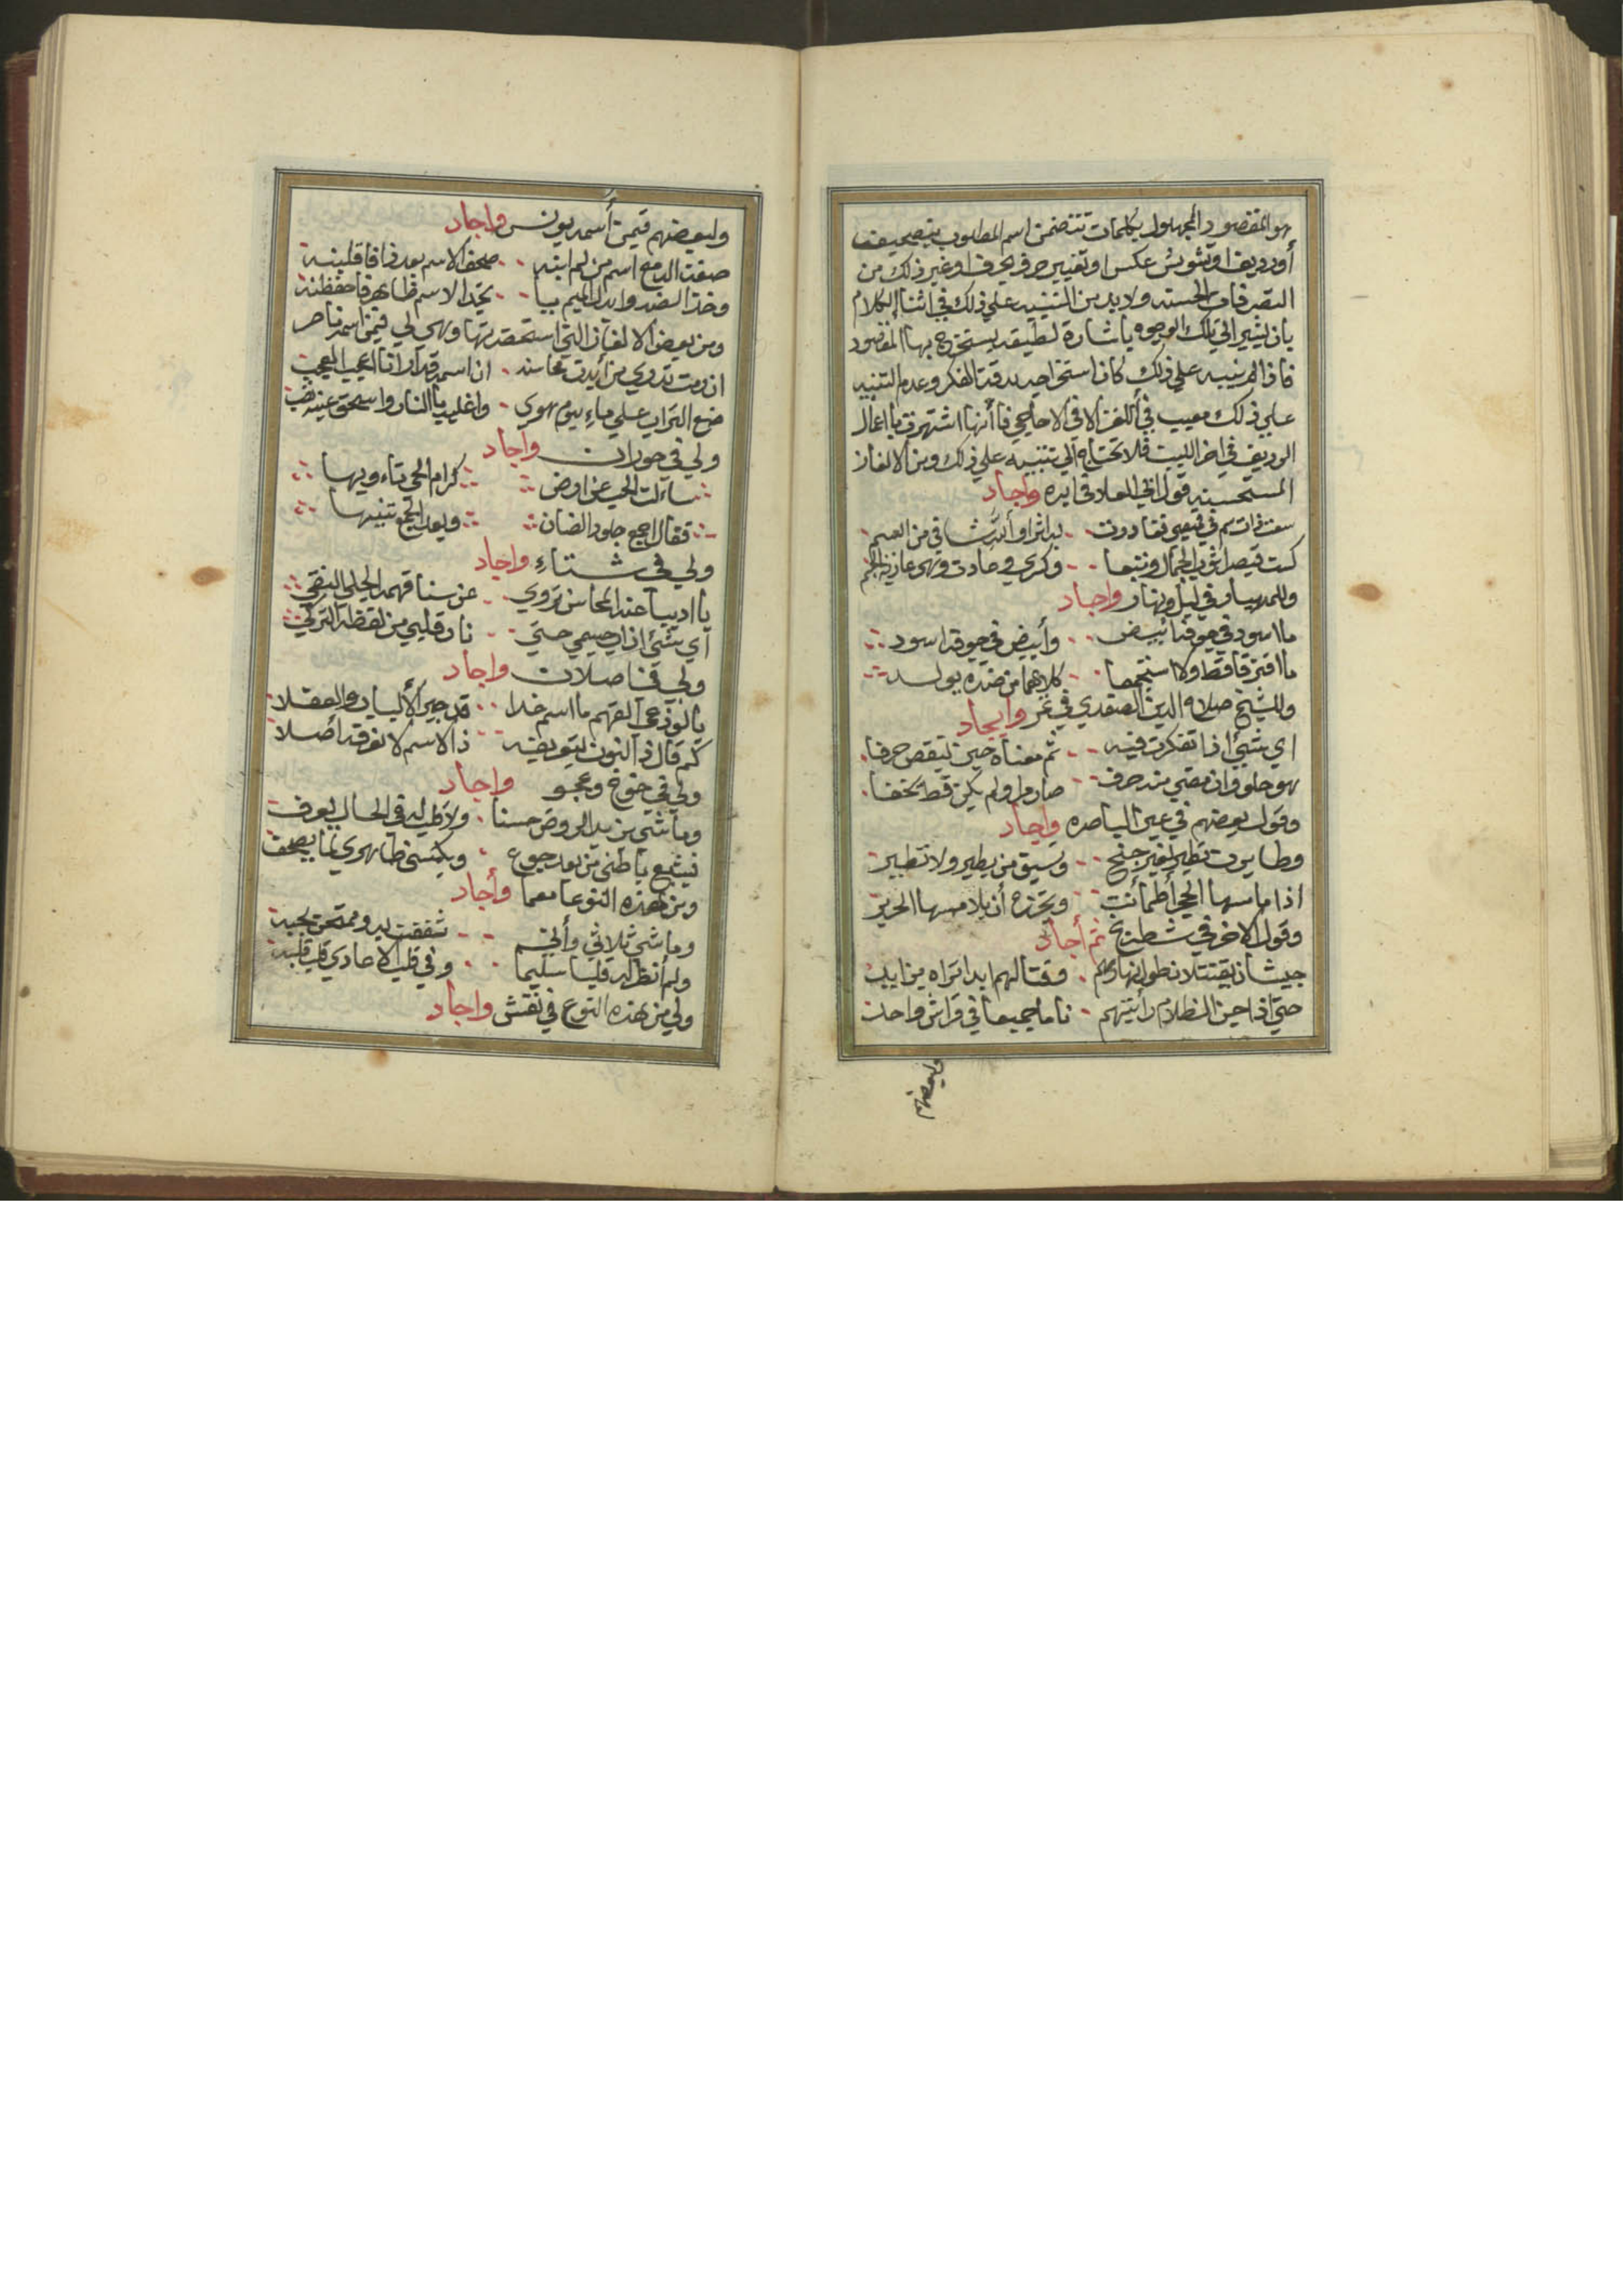 هو المقصود المجهول بكلمات تتضمن اسم المطلوب بتصحيف
أورديف او تشويش عكس او تغيير حرف بحرف او غير ذلك من
التصرفات الحسنه ولا بد من التنبيه على ذلك في اثنا الكلام
بان يشير الى تلك الوجوه باشارة لطيفه يستخرج بها المقصود
فان لم ينبه على ذلك كان استخراجه بدقة الفكر وعدم التنبيه
على ذلك معيب في ألغز الا في الاحاجي فأنها اشتهرت بأعمال
الرديف في اخر البيت فلا تحتاج الى تنبيه على ذلك ومن الالغاز
المستحسنه قول ابي العلا في ابره واجاد
سعت ذات سم في قميصي فغادرت بها اثرا والله شافي من السم
كست قيصل ثوب الجمال وتبعا وكسرى وعادت وهي عارية الجسم
وللمهيار في ليل ونهار واجاد
ما اسود في جوفه أبيض وأبيض في جوفه اسود
ما افترقا قط ولا استجمعا كلاهما من ضده يولد
وللشيخ صلاح الدين الصفدي في تمر واجاد
اي شيئ اذا تفكرت فيه ثم معناه حين ينقص حرفا
هو حلو وان مضى منه حرف صار مرا ولم يكن قط يخفا
وقول بعضهم في عين الباصره واجاد
وطايرت تطير بغير جنح وتسبق من يطير ولا تطير
اذا ما مسها الحجر أطمأنت وتجزع أن يلامسها الحرير
وقول الاخر في شطرنج ثم أجاد
جيشان يقتتلا بطول نهارهم وقتالهم ابدا تراه بزايد
حتى اذا حين الظلام رأيتهم ناما جميعا في فراش واحد
ولبعضهم
ولبعضهم فيمن أسمه يونس واجاد
صفت الدمع اسم من لم ابنه صحف الاسم بعد ذا فاقلبنه
وخذ الضد وابدل الميم بيا تجد الاسم ظاهر فاحفظنه
ومن بعض الالغاز التي استحضرتها وهي لي فيمن اسمه ناصر
ان رمت تدري من أبدت محاسنه ان اسمه قد ارانا العجيب العجب
ضع التراب على ماء بيوم هوى واغليه بالنار واسحق عينه
ولي في حوران واجاد
ساءلت الحب عن ارض كرام الحي تاءويها
فقال اجمع جلود الضان وبعد الجمع تنبيها
ولي في شتاء واجاد
يا اديبا عنه المحاسن تروي عن سنا فهمه الجلي النقي
اي شئ اذا جسمي حتي نار قلبي من لفظه التركي
ولي في ناصلات واجاد
يا لوذعي الفهم ما اسم غدا قد حير الألباب والعقلا
كم قال ذا النون بتعريضه ذا الاسم لا نعرفه أصلا
ولي في خوخ وعجو واجاد
وما شي بن يد الروض حسنا ولاطي له في الحال يعرف
فيشبع باطني من بعد جوع ويكتسي ظاهري لما يصحف
ومن هذه النوع معما وأجاد
وما شي ثلاثي وأليم شففت به وممتحن بحبه
ولم أنظر له قلبا سليما وفي قلب الاعادي قلب قلبه
ولي من هذه النوع في نقش واجاد